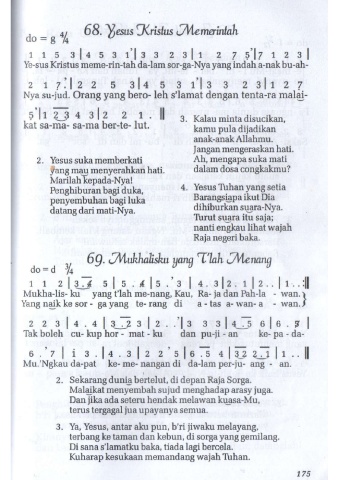 68. Yesus Kristus Memerintah
do = g 4/4
1 1 5 3 | 4 5 3 1 | 3 3 2 3 | 1 2 7 5 | 7 1 2 3 |
Ye-sus Kristus meme-rin-tah da-lam sor-ga-Nya yang indah a-nak buah-
2 1 7 . | 2 2 5 3 | 4 5 3 1 | 3 3 2 3 | 1 2 7
Nya su-jud. Orang yang bero- leh s'lamat dengan tenta-ra malai-
5 | 1 2 3 4 3 | 2 2 1 . ||
kat sa-ma- sa-ma ber-te- lut.
2. Yesus suka memberkati
yang mau menyerahkan hati.
Marilah kepada-Nya!
Penghiburan bagi duka,
penyembuhan bagi luka
datang dari mati-Nya.
3. Kalau minta disucikan,
kamu pula dijadikan
anak-anak Allahmu.
Jangan mengeraskan hati.
Ah, mengapa suka mati
dalam dosa congkakmu?
4. Yesus Tuhan yang setia
Barangsiapa ikut Dia
dihiburkan suara-Nya.
Turut suara itu saja;
nanti engkau lihat wajah
Raja negeri baka.
69. Mukhalisku yang T'lah Menang
do = d 3/4
1 1 2 | 3 . 4 5 | 5 . 4 | 5 . 3 | 4 . 3 | 2 . 1 | 2 . . | 1 . . :||
Mukha-lis- ku yang t'lah me-nang, Kau, Ra- ja dan Pah-la - wan.
Yang naik ke sor - ga yang te- rang di a - tas a- wan- a - wan.
2 2 3 | 4 . 4 | 3 . 2 3 | 2 . . | 3 3 3 | 4 . 5 6 | 6 . 3
Tak boleh cu- kup hor - mat - ku dan pu-ji - an ke- pa - da-
6 . 7 | 1 3 . | 4 . 3 | 2 2 5 | 6 . 5 4 | 3 2 2 . 1 | 1 . . ||
Mu.'Ngkau da-pat ke- me- nangan di da-lam per-ju- ang - an.
2. Sekarang dunia bertelut, di depan Raja Sorga.
Malaikat menyembah sujud menghadap arasy juga.
Dan jika ada seteru hendak melawan kuasa-Mu,
terus tergagal jua upayanya semua.
3. Ya, Yesus, antar aku pun, b'ri jiwaku melayang,
terbang ke taman dan kebun, di sorga yang gemilang.
Di sana s'lamatku baka, tiada lagi bercela.
Kuharap kesukaan memandang wajah Tuhan.
175